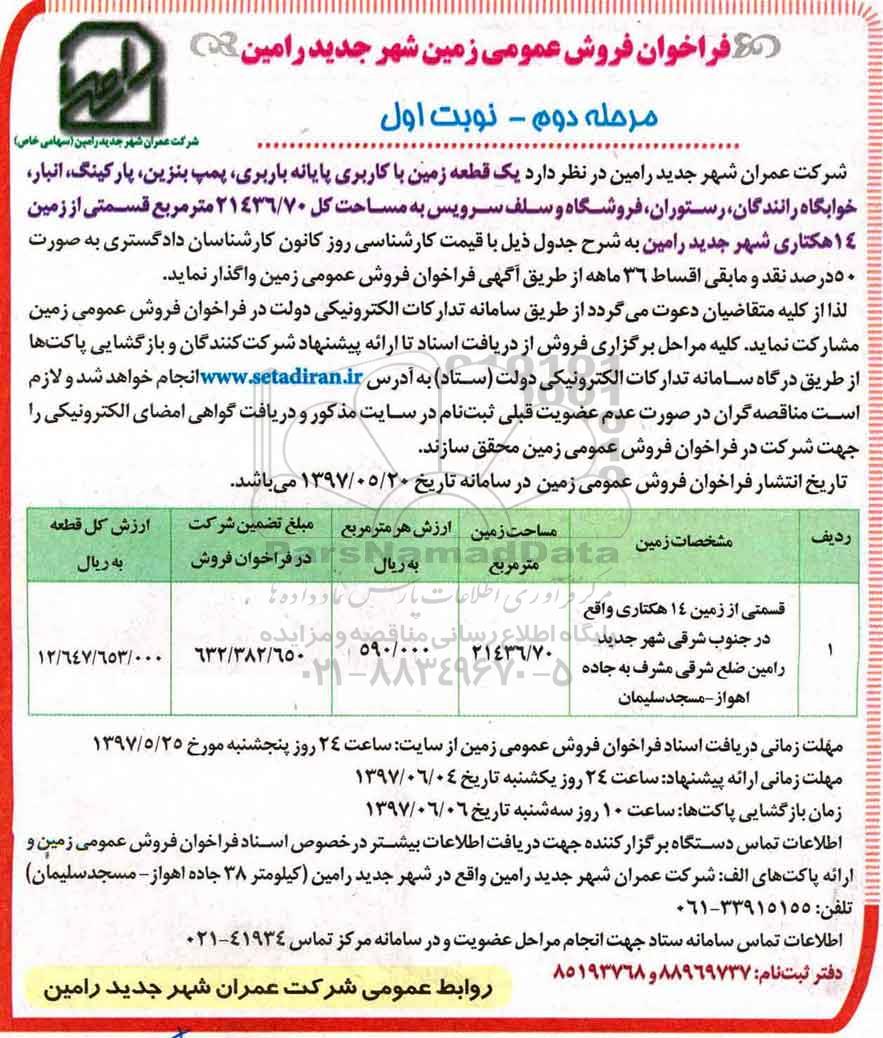 فراخوان فروش عمومی زمین شهر جدید رامین
مرحله دوم - نوبت اول
شرکت عمران شهر جدید رامین (سهامی خاص)
شرکت عمران شهر جدید رامین در نظر دارد یک قطعه زمین با کاربری پایانه باربری، پمپ بنزین، پارکینگ، انبار،
خوابگاه رانندگان، رستوران، فروشگاه و سلف سرویس به مساحت کل ۲۱۴۳۶/۷۰ مترمربع قسمتی از زمین
۱۴هکتاری شهر جدید رامین به شرح جدول ذیل با قیمت کارشناسی روز کانون کارشناسان دادگستری به صورت
۵۰درصد نقد و مابقی اقساط ۳۶ ماهه از طریق آگهی فراخوان فروش عمومی زمین واگذار نماید.
لذا از کلیه متقاضیان دعوت می‌گردد از طریق سامانه تدارکات الکترونیکی دولت در فراخوان فروش عمومی زمین
مشارکت نماید. کلیه مراحل برگزاری فروش از دریافت اسناد تا ارائه پیشنهاد شرکت‌کنندگان و بازگشایی پاکت‌ها
از طریق درگاه سامانه تدارکات الکترونیکی دولت (ستاد) به آدرس www.setadiran.ir انجام خواهد شد و لازم
است مناقصه‌گران در صورت عدم عضویت قبلی ثبت‌نام در سایت مذکور و دریافت گواهی امضای الکترونیکی را
جهت شرکت در فراخوان فروش عمومی زمین محقق سازند.
تاریخ انتشار فراخوان فروش عمومی زمین در سامانه تاریخ ۱۳۹۷/۰۵/۲۰ می‌باشد.
ردیف مشخصات زمین مساحت زمین مترمربع ارزش هر مترمربع به ریال مبلغ تضمین شرکت در فراخوان فروش ارزش کل قطعه به ریال
ParsNamadData
مرکز فرآوری اطلاعات پارس نماد داده‌ها
پایگاه اطلاع رسانی مناقصه و مزایده
۰۲۱-۸۸۳۴۹۶۷۰-۵
۱
قسمتی از زمین ۱۴ هکتاری واقع
در جنوب شرقی شهر جدید
رامین ضلع شرقی مشرف به جاده
اهواز-مسجدسلیمان
۲۱۴۳۶/۷۰ ۵۹۰/۰۰۰ ۶۳۲/۳۸۲/۶۵۰ ۱۲/۶۴۷/۶۵۳/۰۰۰
مهلت زمانی دریافت اسناد فراخوان فروش عمومی زمین از سایت: ساعت ۲۴ روز پنجشنبه مورخ ۱۳۹۷/۵/۲۵
مهلت زمانی ارائه پیشنهاد: ساعت ۲۴ روز یکشنبه تاریخ ۱۳۹۷/۰۶/۰۴
زمان بازگشایی پاکت‌ها: ساعت ۱۰ روز سه‌شنبه تاریخ ۱۳۹۷/۰۶/۰۶
اطلاعات تماس دستگاه برگزارکننده جهت دریافت اطلاعات بیشتر درخصوص اسناد فراخوان فروش عمومی زمین و
ارائه پاکت‌های الف: شرکت عمران شهر جدید رامین واقع در شهر جدید رامین (کیلومتر ۳۸ جاده اهواز- مسجدسلیمان)
تلفن: ۳۳۹۱۵۱۵۵-۰۶۱
اطلاعات تماس سامانه ستاد جهت انجام مراحل عضویت و در سامانه مرکز تماس ۴۱۹۳۴-۰۲۱
دفتر ثبت‌نام: ۸۸۹۶۹۷۳۷ و ۸۵۱۹۳۷۶۸
روابط عمومی شرکت عمران شهر جدید رامین